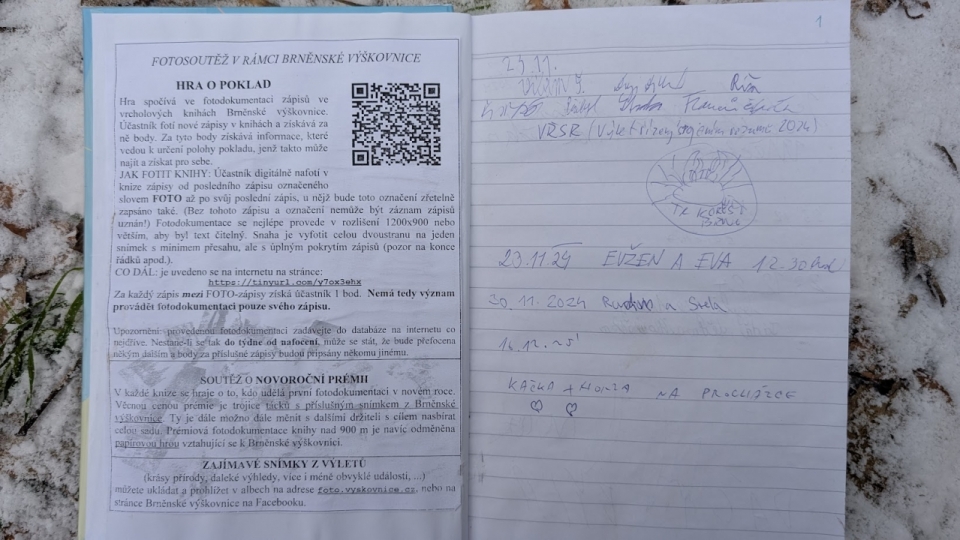 FOTOSOUTĚŽ V RÁMCI BRNĚNSKÉ VÝŠKOVNICE
HRA O POKLAD
Hra spočívá ve fotodokumentaci zápisů ve
vrcholových knihách Brněnské výškovnice.
Účastník fotí nové zápisy v knihách a získává za
ně body. Za tyto body získává informace, které
vedou k určení polohy pokladu, jenž takto může
najít a získat pro sebe.
JAK FOTIT KNIHU: Účastník digitálně nafotí v
knize zápisy od posledního zápisu označeného
slovem FOTO až po svůj poslední zápis, u nějž bude toto označení zřetelně
zapsáno také. (Bez tohoto zápisu a označení nemůže být záznam zápisů
uznán!) Fotodokumentace se nejlépe provede v rozlišení 1200x900 nebo
větším, aby byl text čitelný. Snaha je vyfotit celou dvoustranu na jeden
snímek s minimem přesahu, ale s úplným pokrytím zápisů (pozor na konce
řádků apod.).
CO DÁL: je uvedeno se na internetu na stránce:
https://tinyurl.com/y7ox3ehx
Za každý zápis mezi FOTO-zápisy získá účastník 1 bod. Nemá tedy význam
provádět fotodokumentaci pouze svého zápisu.
Upozornění: provedenou fotodokumentaci zadávejte do databáze na internetu co
nejdříve. Nestane-li se tak do týdne od nafocení, může se stát, že bude přefocena
někým dalším a body za příslušné zápisy budou připsány někomu jinému.
SOUTĚŽ O NOVOROČNÍ PRÉMII
V každé knize se hraje o to, kdo udělá první fotodokumentaci v novém roce.
Věcnou cenou prémie je trojice tácků s příslušným snímkem z Brněnské
výškovnice. Ty je dále možno dále měnit s dalšími držiteli s cílem nasbírat
celou sadu. Prémiová fotodokumentace knihy nad 900 m je navíc odměněna
papírovou hrou vztahující se k Brněnské výškovnici.
ZAJÍMAVÉ SNÍMKY Z VÝLETŮ
(krásy přírody, daleké výhledy, více i méně obvyklé události, ...)
můžete ukládat a prohlížet v albech na adrese foto.vyskovnice.cz, nebo na
stránce Brněnské výškovnice na Facebooku.
1
VŘSR (Výlet řízený 2024)
23.11 24 EVŽEN A EVA 12.30
30.11.2024 a
16.12.
KAČKA + HONZA NA PROCHÁZCE